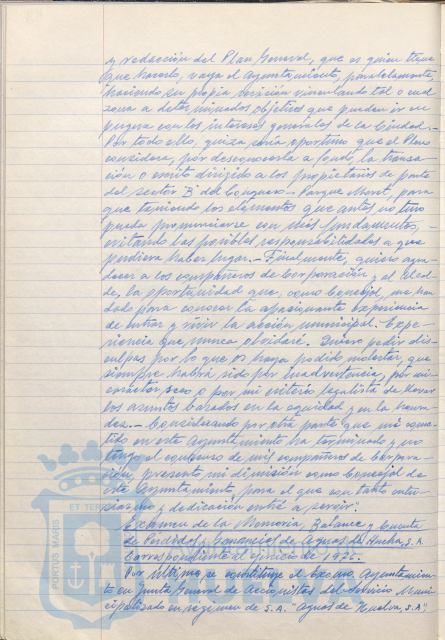 y redacción del Plan General, que es quien tiene
que hacerlo, vaya el Ayuntamiento, paralelamente,
haciendo su propia revisión vinculando tal o cual
zona a determinados objetivos que pueden ir en
pugna con los intereses generales de la Ciudad.-
Por todo ello, quizá sería oportuno que el Pleno
considera, por desconocerla a fondo, la transa-
ción o envite dirigido a los propietarios de parte
del sector B del Conquero - Parque Moret, para
que teniendo los elementos que antes no tuvo
pueda pronunciarse con más fundamento,
evitando las posibles responsabilidades a que
pudiera haber lugar.- Finalmente, quiero agra-
decer a los compañeros de Corporación y al Alcal-
de, la oportunidad que, como Concejal, me han
dado para conocer la apasionante experiencia
de entrar y vivir la acción municipal. Expe-
riencia que nunca olvidaré. Quiero pedir dis-
culpas por lo que os haya podido molestar, que
siempre habrá sido por inadvertencia, por mi
carácter seco o por mi criterio legalista de llevar
los asuntos basados en la equidad y en la honra-
dez.- Considerando por otra parte que mi come-
tido en este Ayuntamiento ha terminado y no
tengo el consenso de mis compañeros de Corpora-
ción, presento mi dimisión como Concejal de
este Ayuntamiento para el que con tanto entu-
siasmo y dedicación entré a servir".
Examen de la Memoria, Balance y Cuenta
de Perdidas y Ganancias de Aguas de Huelva, S.A.
correspondiente al ejercicio de
Por último se constituye el Excmo. Ayuntamien-
to en Junta General de Accionistas del Servicio Muni-
cipalizado en régimen de S.A. "Aguas de Huelva, S.A."
PORTUS MARIS
ET TER